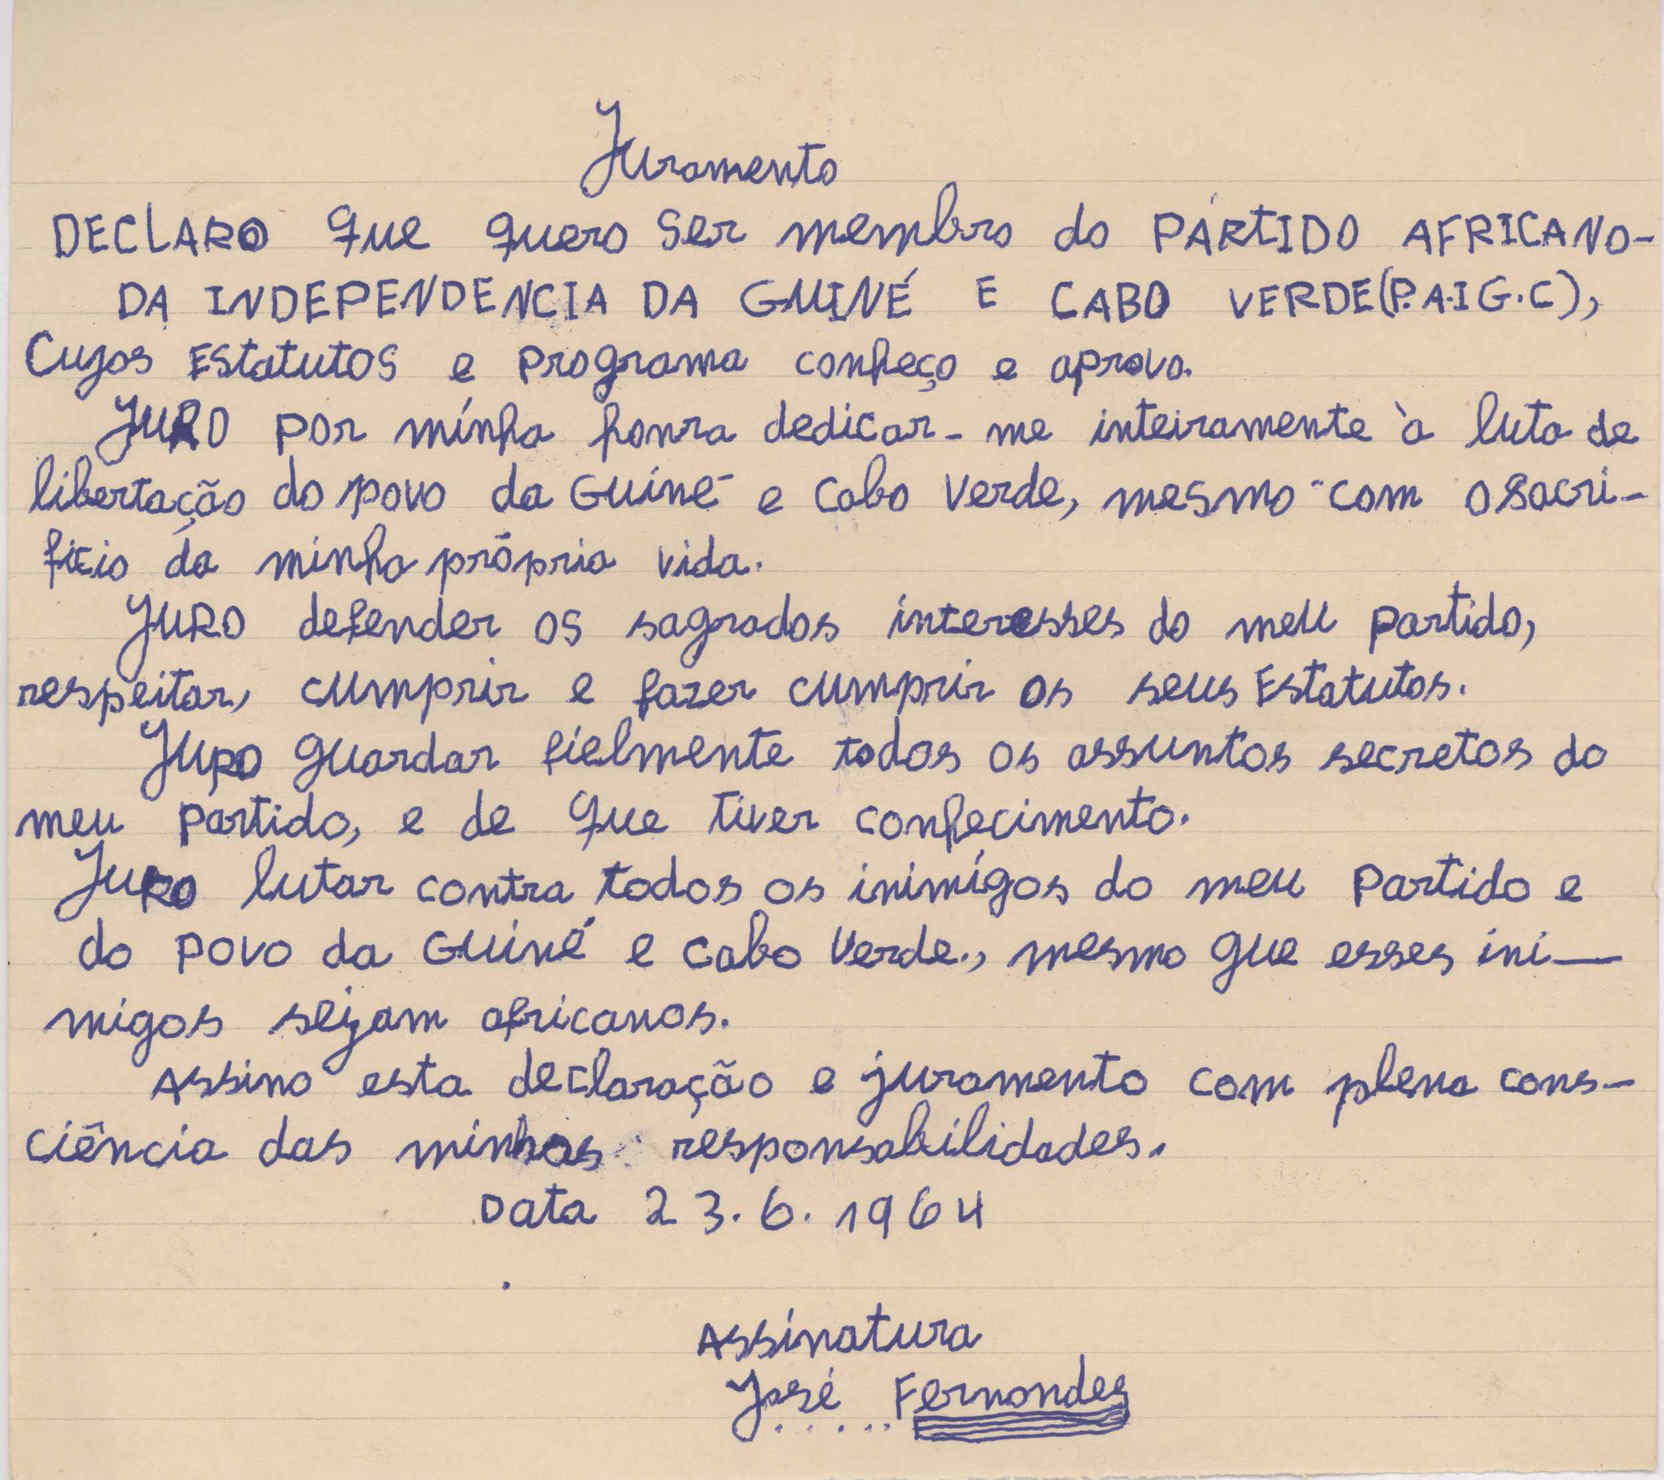 Juramento
DECLARO que quero ser membro do PARTIDO AFRICANO-
DA INDEPENDENCIA DA GUINÉ E CABO VERDE(P.A.I G.C),
Cujos EStatutos e programa conheço e aprovo.
JURO por minha honra dedicar-me inteiramente à luta de
libertação do povo da Guiné e Cabo Verde, mesmo com o sacri-
fício da minha própria vida.
JURO defender os sagrados interesses do meu partido,
respeitar, cumprir e fazer cumprir os seus Estatutos.
JURO guardar fielmente todos os assuntos secretos do
meu partido, e de que tiver conhecimento.
JURO lutar contra todos os inimígos do meu Partido e
do povo da Guiné e Cabo Verde., mesmo que esses ini-
migos sejam africanos.
Assino esta declaração e juramento com plena cons-
ciência das minhas responsabilidades.
Data 23.6.1964
Assinatura
José Fernandes